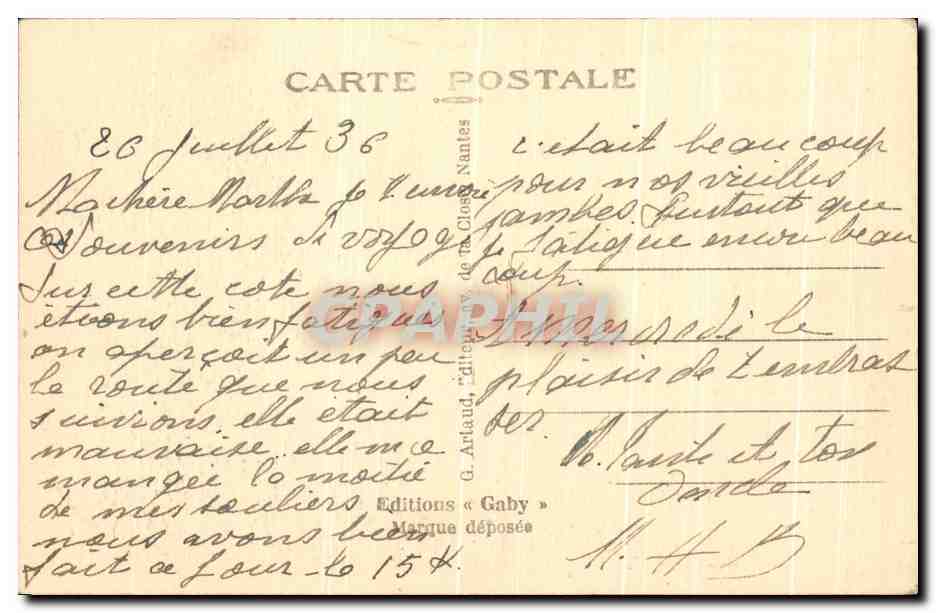 CARTE POSTALE
26 Juillet 36
Ma chère Marthe je t'envoie
ces souvenirs de voyage
Sur cette cote nous
étions bien fatigués
on aperçoit un peu
la route que nous
suivions elle était
mauvaise elle m'a
mangée la moitié
de mes souliers
nous avons bien
fait ce jour-là 15 K.
c'etait beaucoup
pour nos vieilles
jambes. Surtout que
je fatigue encore beau
coup.
A mercredi le
plaisir de t'embras
ser.
tante et ton
Oncle
M. H B
G. Artaud, Editeur, de la Close, Nantes
Editions « Gaby »
Marque déposée
CPAPHIL